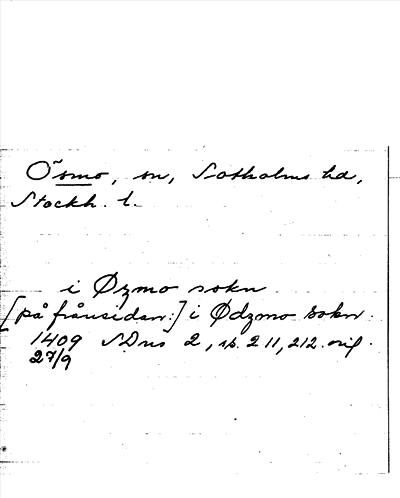 Ösmo, sn, Sotholms hd,
Stockh. l.
i Øzmo sokn
[på frånsidan:] i Ødzmo sokn.
1409 SDns 2, s. 211, 212. orig.
27/9